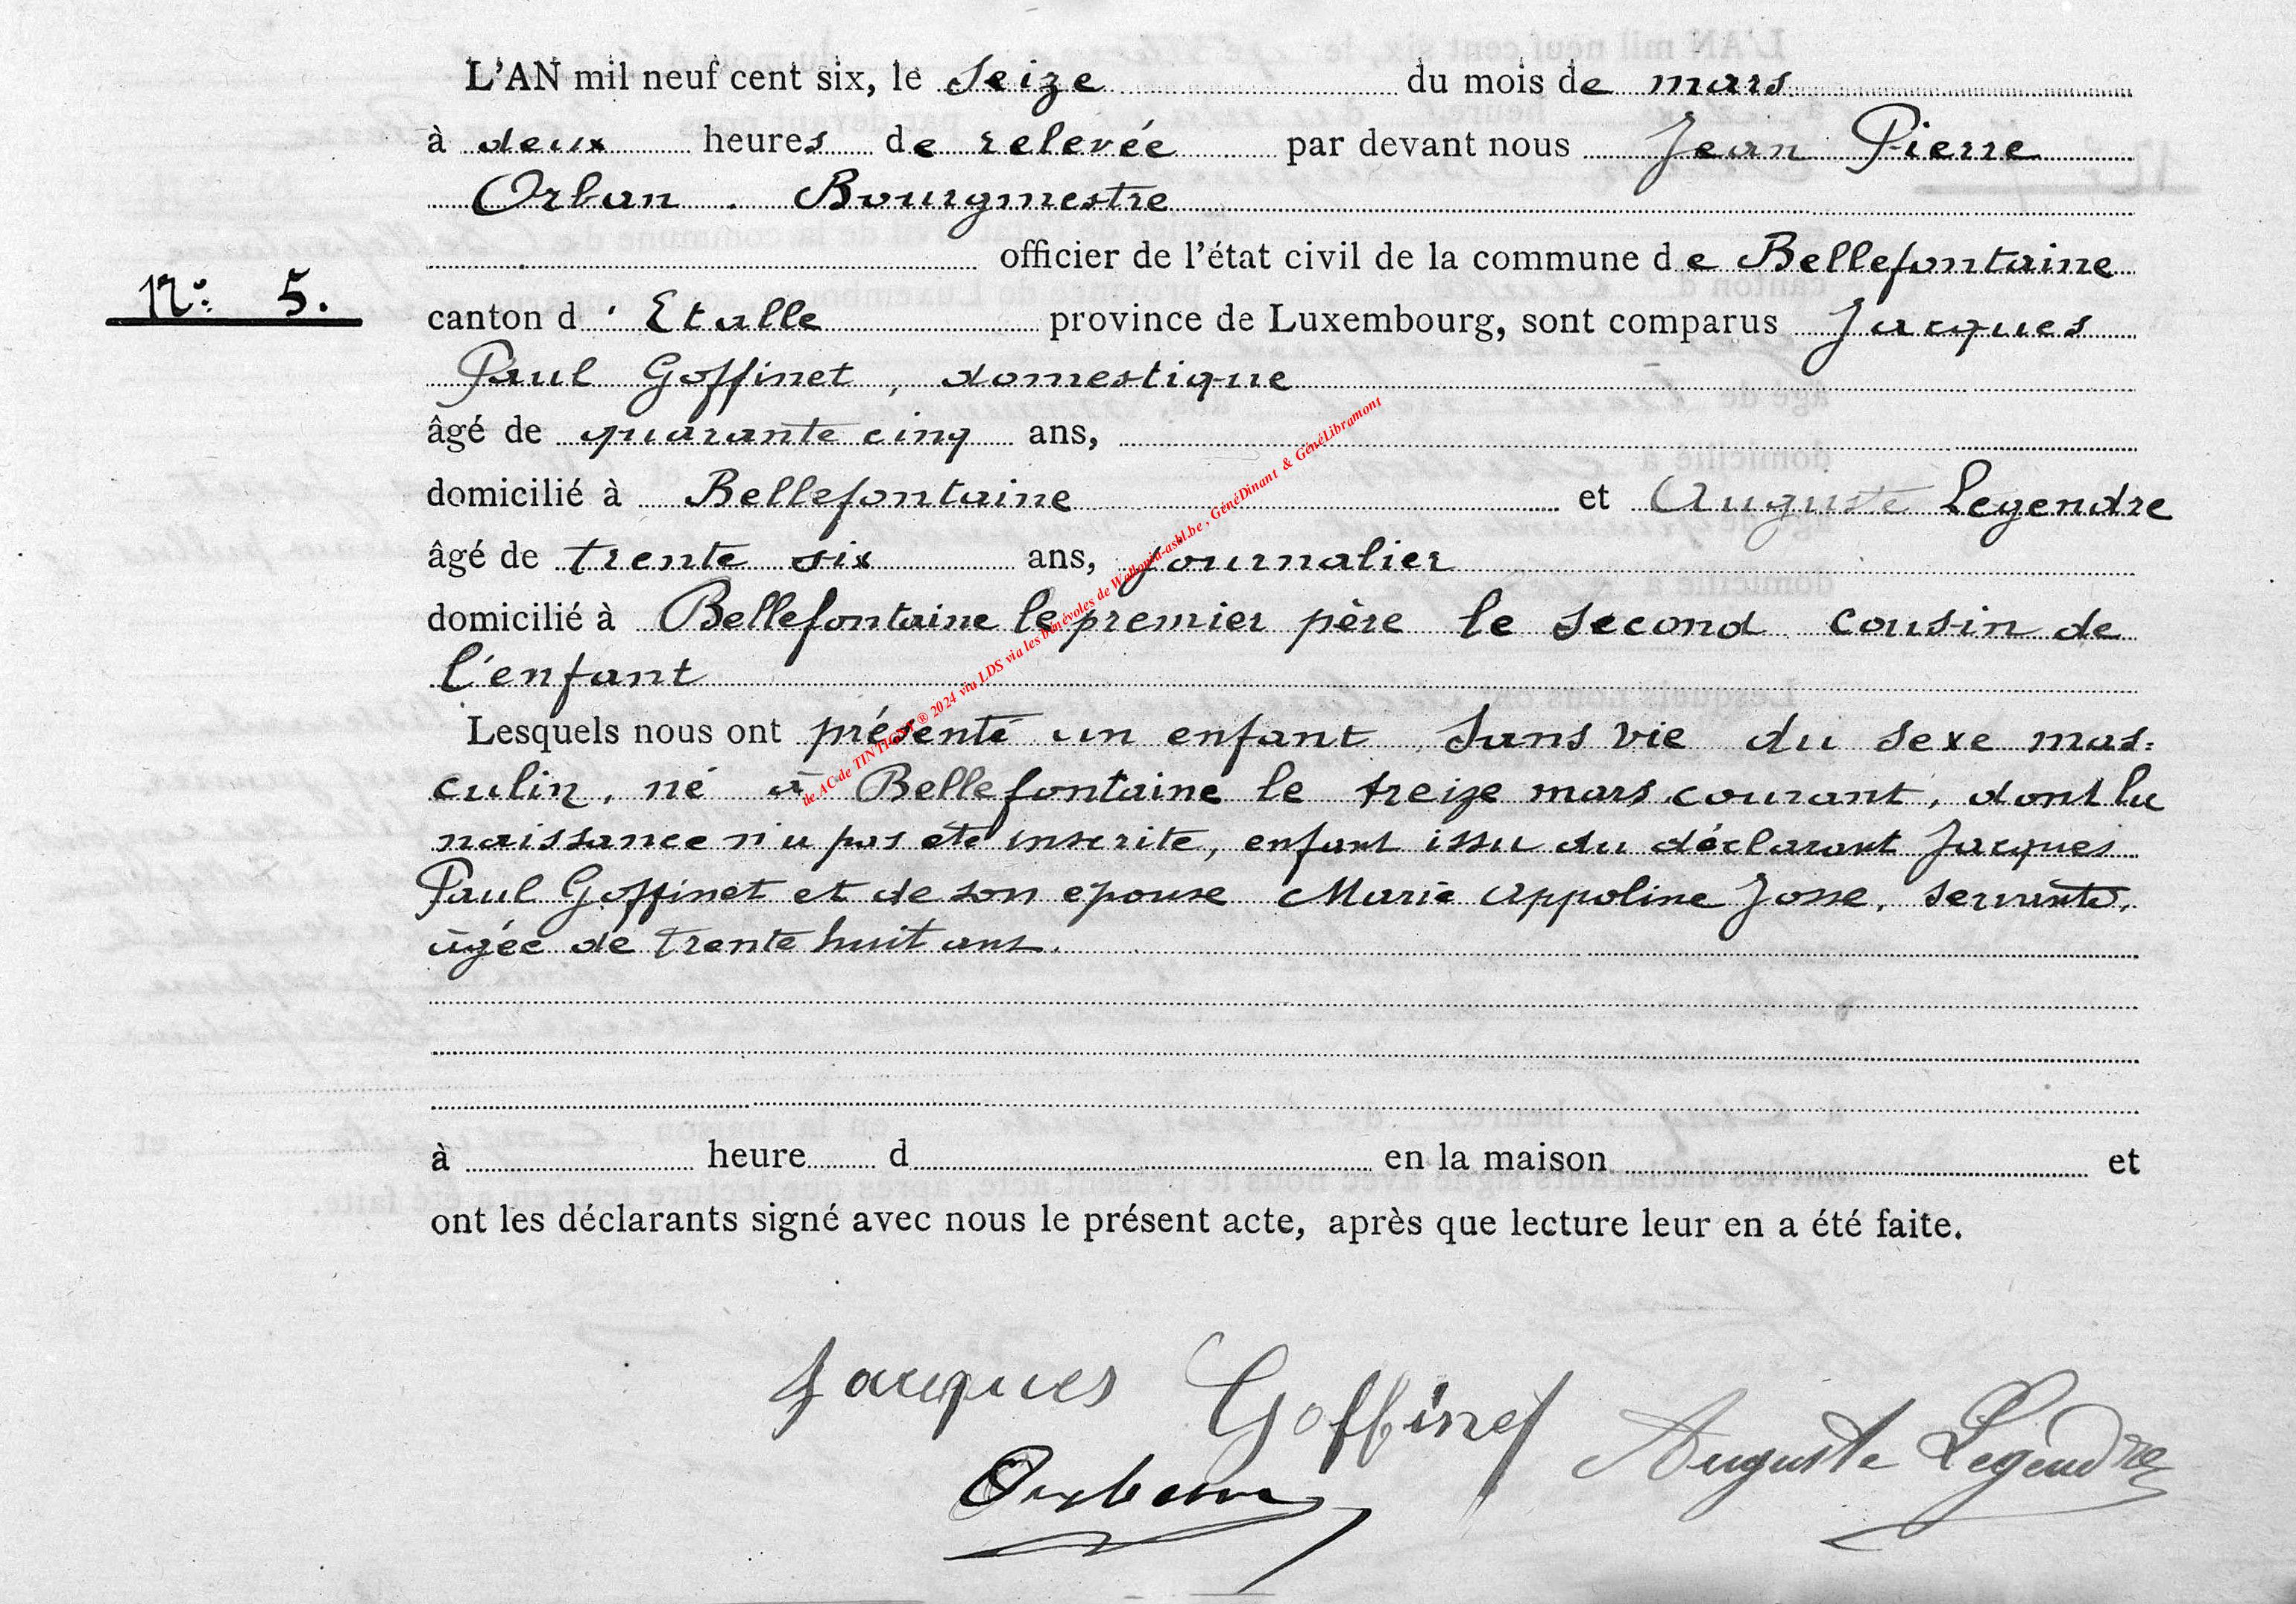 L'AN mil neuf cent six, le seize du mois de mars
à deux heures de relevée par devant nous Jean Pierre
Orban. Bourgmestre
officier de l'état civil de la commune de Bellefontaine
N° 5.
canton d'Etalle province de Luxembourg, sont comparus Jacques
Paul Goffinet, domestique
âgé de quarante cinq ans,
domicilié à Bellefontaine et Auguste Legendre
âgé de trente six ans, journalier
domicilié à Bellefontaine le premier père le second cousin de
l'enfant
Lesquels nous ont présenté un enfant sans vie du sexe mas=
culin, né à Bellefontaine le treize mars courant, dont la
naissance n'a pas été inscrite, enfant issu du déclarant Jacques
Paul Goffinet et de son épouse Marie Appoline Josse, servante,
âgée de trente huit ans.
à heure d en la maison et
ont les déclarants signé avec nous le présent acte, après que lecture leur en a été faite.
Jacques Goffinet
Auguste Legendre
Orban
de AC de TINTIGNY ® 2024 via LDS via les bénévoles de Wallonia-asbl.be, GénéDinant & GénéLibramont